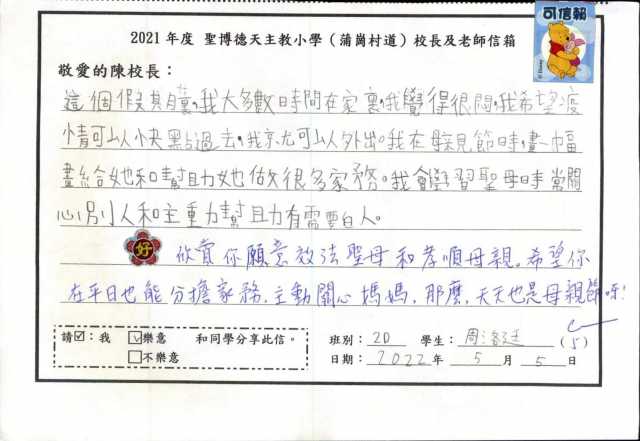 可信報
© Disney
2021 年度 聖博德天主教小學（蒲崗村道）校長及老師信箱
敬愛的陳校長：
這個假其脏裏,我大多數時間在家裏,我覺得很悶,我希望疫
情可以快點過去,我就可以外出。我在母親節時,畫一幅
畫給她和幫助她做很多家務。我會學習聖母時常關
心別人和主動幫助有需要白人。
好 欣賞你願意效法聖母和孝順母親。希望你
在平日也能分擔家務,主動關心媽媽,那麼,天天也是母親節呀!
請☑：我 ☑樂意 和同學分享此信。
□不樂意
班別：2D 學生：周洛廷 (5)
日期：2022 年 5 月 5 日